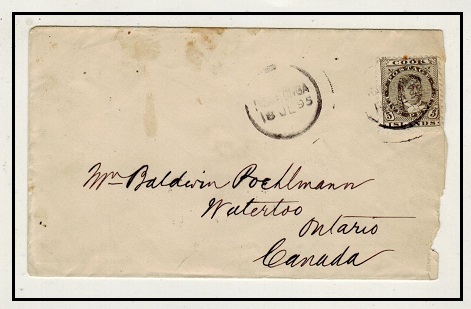 COOK
POSTAGE
5 3
ISLANDS
18 JL 95
Mr Baldwin Poehlmann
Waterloo
Ontario
Canada